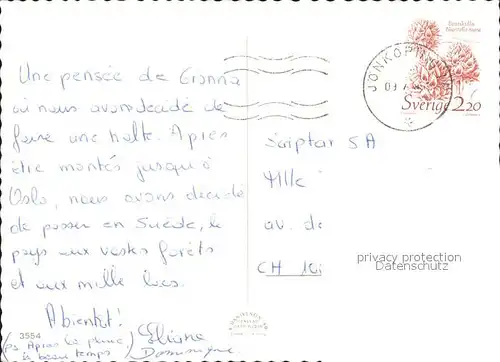 Brunkulla
Nigritella nigra
JÖNKÖPING
Sverige 2.20
Une pensée de Granna
où nous avons décidé de
faire une halte. Après
être montés jusqu'à
Oslo, nous avons décidé
de passer en Suède, le
pays aux vastes forêts
et aux mille lacs.
A bientôt!
Eliane
Dominique
(ps Après la pluie,
le beau temps)
3554
Scriptar SA
Mlle
av. de
CH 10
privacy protection
Datenschutz